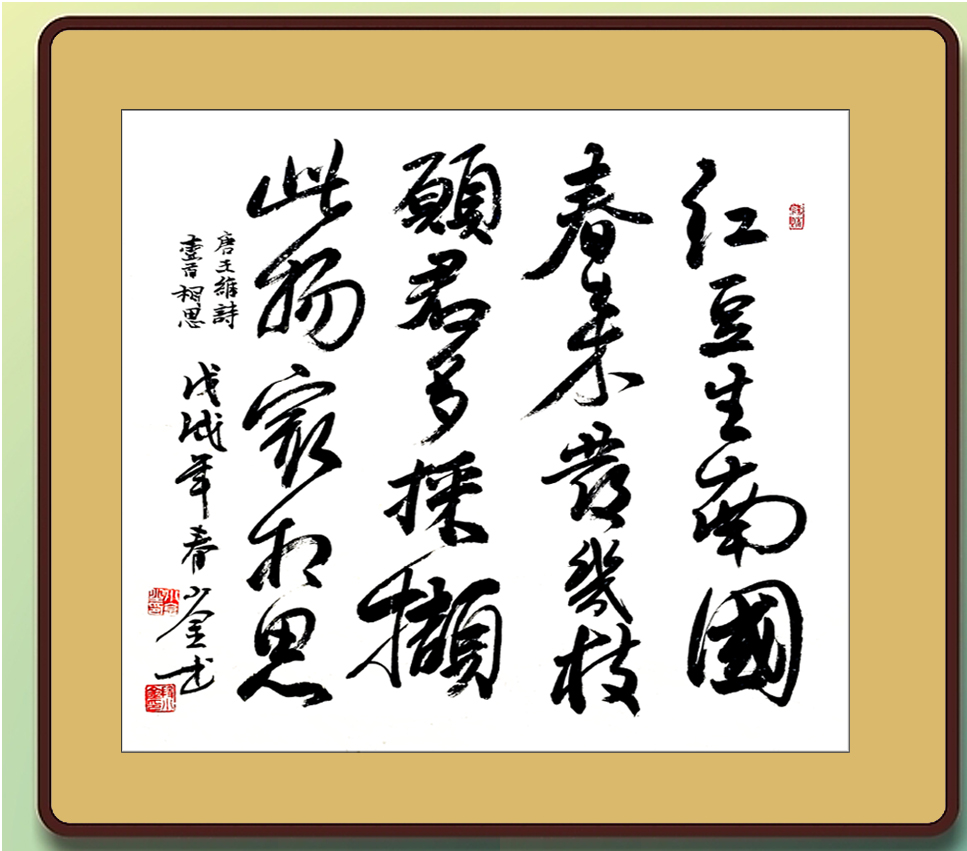 红豆生南國
春来發幾枝
願君多採擷
此物最相思
唐王維詩
壹首相思 戊戌年春小金书